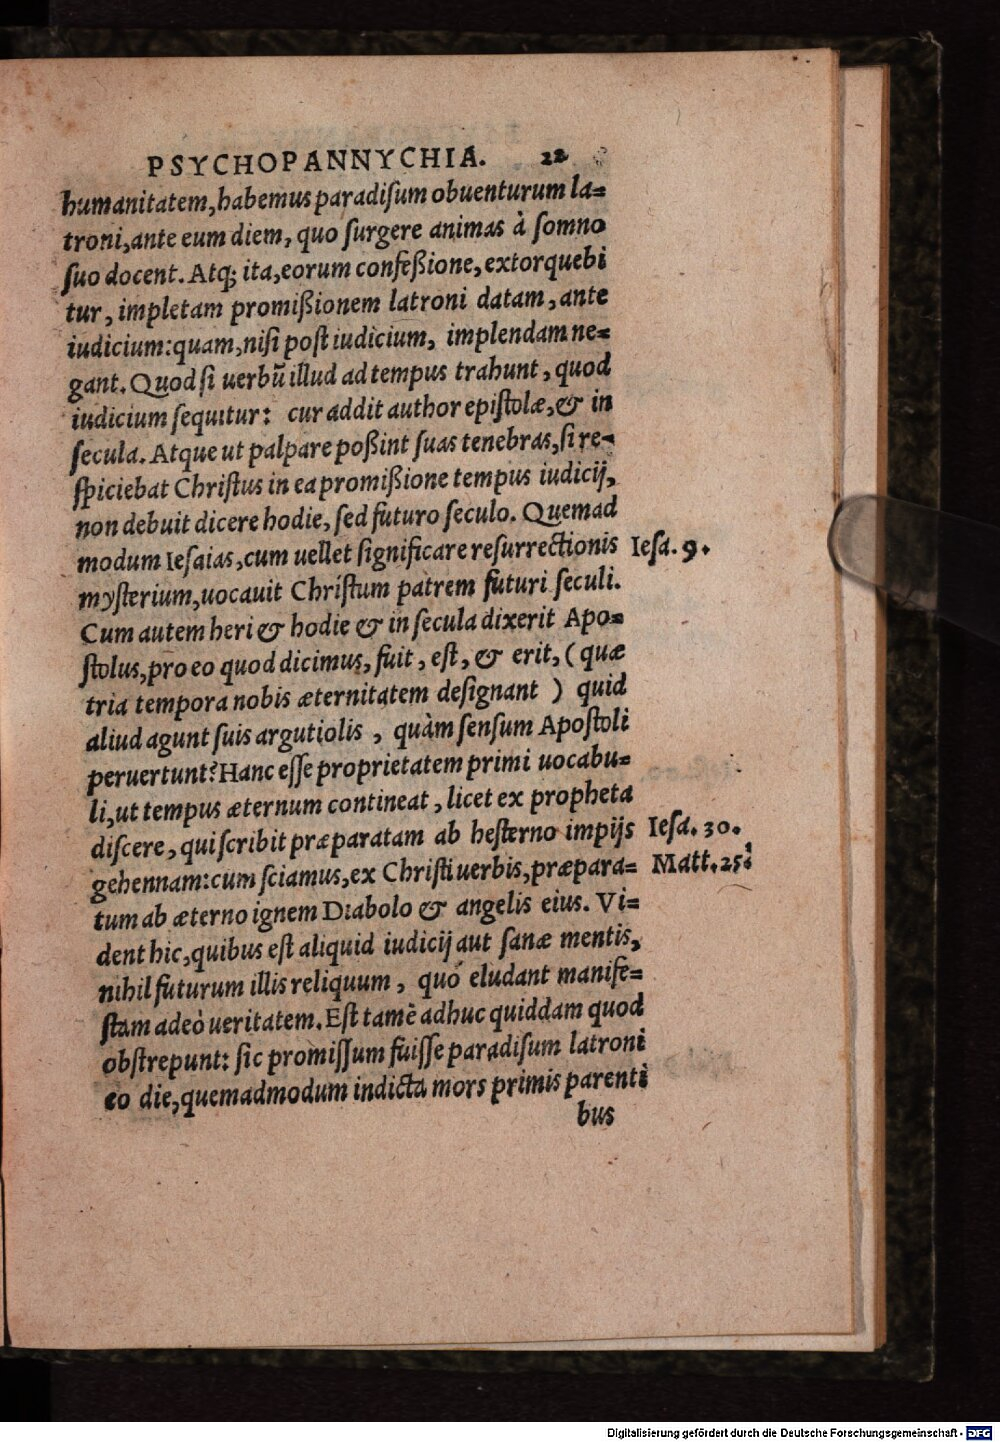 PSYCHOPANNYCHIA. 22
humanitatem, habemus paradisum obuenturum la-
troni, ante eum diem, quo surgere animas à somno
suo docent. Atq; ita, eorum confeßione, extorquebi
tur, impletam promißionem latroni datam, ante
iudicium: quam, nisi post iudicium, implendam ne-
gant. Quod si uerbũ illud ad tempus trahunt, quod
iudicium sequitur: cur addit author epistolæ, & in
secula. Atque ut palpare poßint suas tenebras, si re-
spiciebat Christus in ea promißione tempus iudicij,
non debuit dicere hodie, sed futuro seculo. Quemad
modum Iesaias, cum uellet significare resurrectionis Iesa. 9.
mysterium, uocauit Christum patrem futuri seculi.
Cum autem heri & hodie & in secula dixerit Apo-
stolus, pro eo quod dicimus, fuit, est, & erit, (quæ
tria tempora nobis æternitatem designant) quid
aliud agunt suis argutiolis, quàm sensum Apostoli
peruertunt? Hanc esse proprietatem primi uocabu-
li, ut tempus æternum contineat, licet ex propheta
discere, qui scribit præparatam ab hesterno impijs Iesa. 30.
gehennam: cum sciamus, ex Christi uerbis, præpara- Matt. 25.
tum ab æterno ignem Diabolo & angelis eius. Vi-
dent hic, quibus est aliquid iudicij aut sanæ mentis,
nihil futurum illis reliquum, quó eludant manife-
stam adeò ueritatem. Est tamẽ adhuc quiddam quod
obstrepunt: sic promissum fuisse paradisum latroni
eo die, quemadmodum indicta mors primis parenti
bus
Digitalisierung gefördert durch die Deutsche Forschungsgemeinschaft - DFG